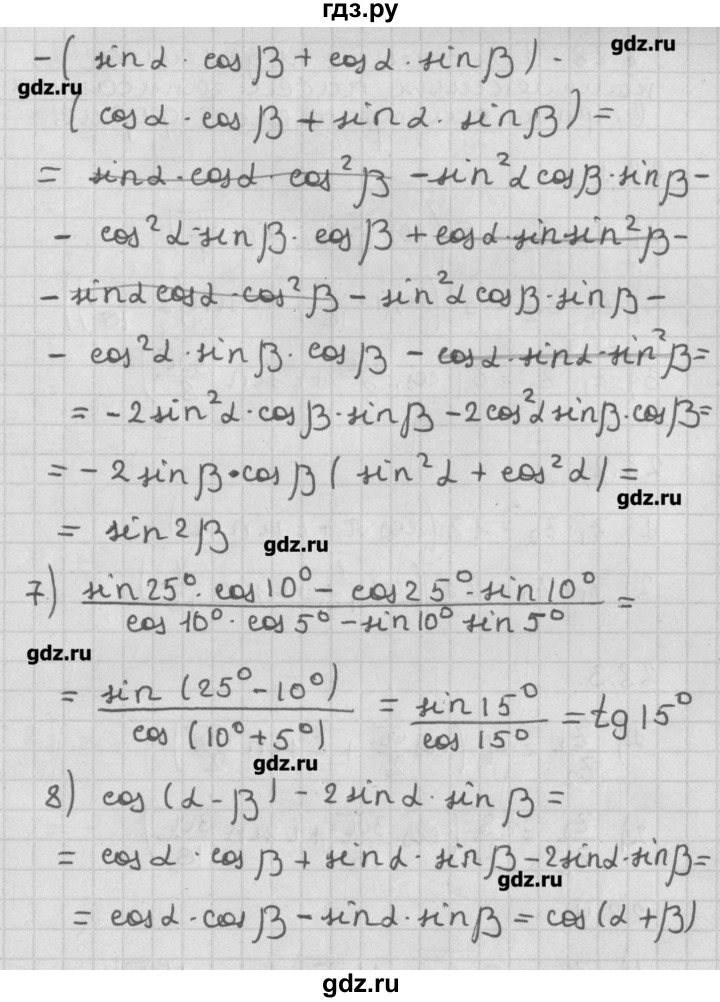 гдз.ру
- ( sin α · cos β + cos α · sin β ) ·
gdz.ru
gdz.ru
( cos α · cos β + sin α · sin β ) =
= sin α · cos α · cos² β - sin² α cos β · sin β -
- cos² α · sin β · cos β + cos α · sin sin² β -
- sin α cos α · cos² β - sin² α cos β · sin β -
- cos² α · sin β · cos β - cos α · sin α · sin² β =
= - 2 sin² α · cos β · sin β - 2 cos² α sin β · cos β =
= - 2 sin β · cos β ( sin² α + cos² α ) =
gdz.ru
= sin 2 β
gdz.ru
7) (sin 25° · cos 10° - cos 25° · sin 10°) / (cos 10° · cos 5° - sin 10° sin 5°) =
gdz.ru
= sin (25° - 10°) / cos (10° + 5°) = sin 15° / cos 15° = tg 15°
gdz.ru
8) cos (α - β) - 2 sin α · sin β =
= cos α · cos β + sin α · sin β - 2 sin α · sin β =
gdz.ru
= cos α · cos β - sin α · sin β = cos (α + β)
gdz.ru